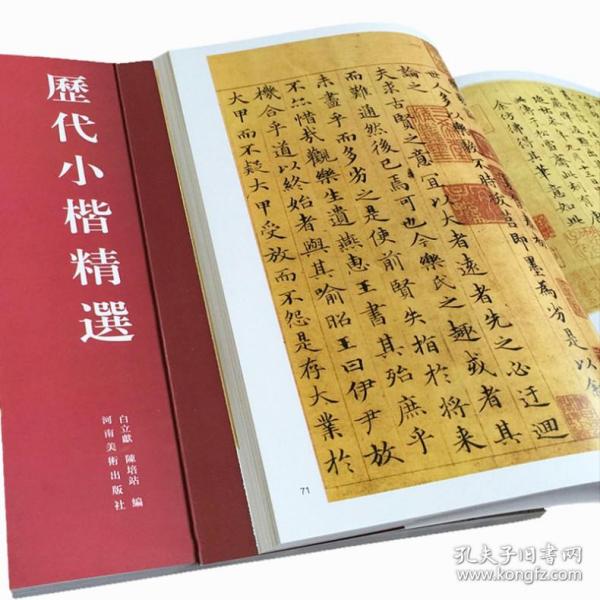 歷代小楷精選
白立獻 陳培站 編
河南美術出版社
世人多以樂毅不時拔莒即墨為劣是以敘
論之
夫求古賢之意宜以大者遠者先之必迂迴
而難通然後已焉可也今樂氏之趣或者其
未盡乎而多劣之是使前賢失指於將來
不亦惜哉觀樂生遺燕惠王書其殆庶乎
機合乎道以終始者與其喻昭王曰伊尹放
大甲而不疑大甲受放而不怨是存大業於
71
得其筆意如此
孔夫子旧书网
www.kongfz.com